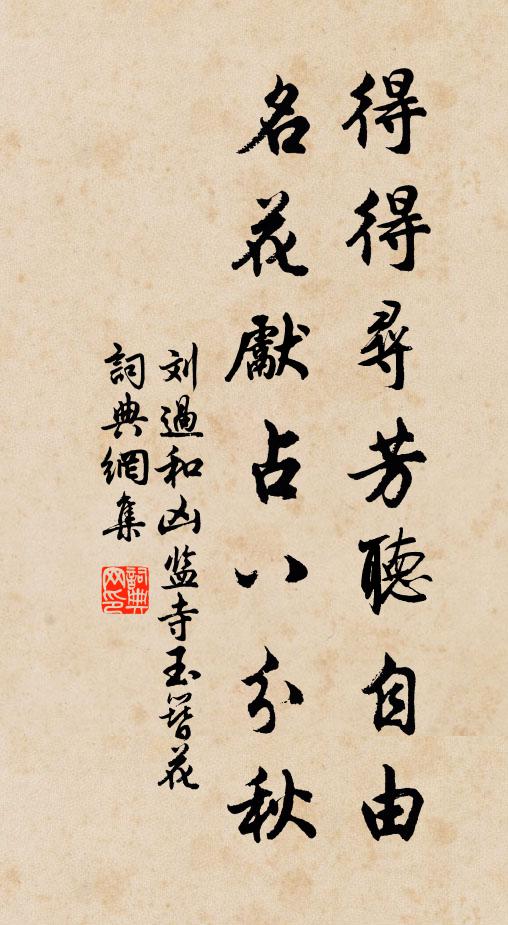 得得尋芳聽自由
名花獻占八分秋
刘過和凶监寺玉簪花
詞典網集
詞典網印